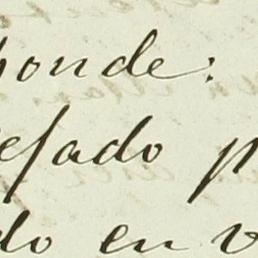 ponde:
esado p
do en v